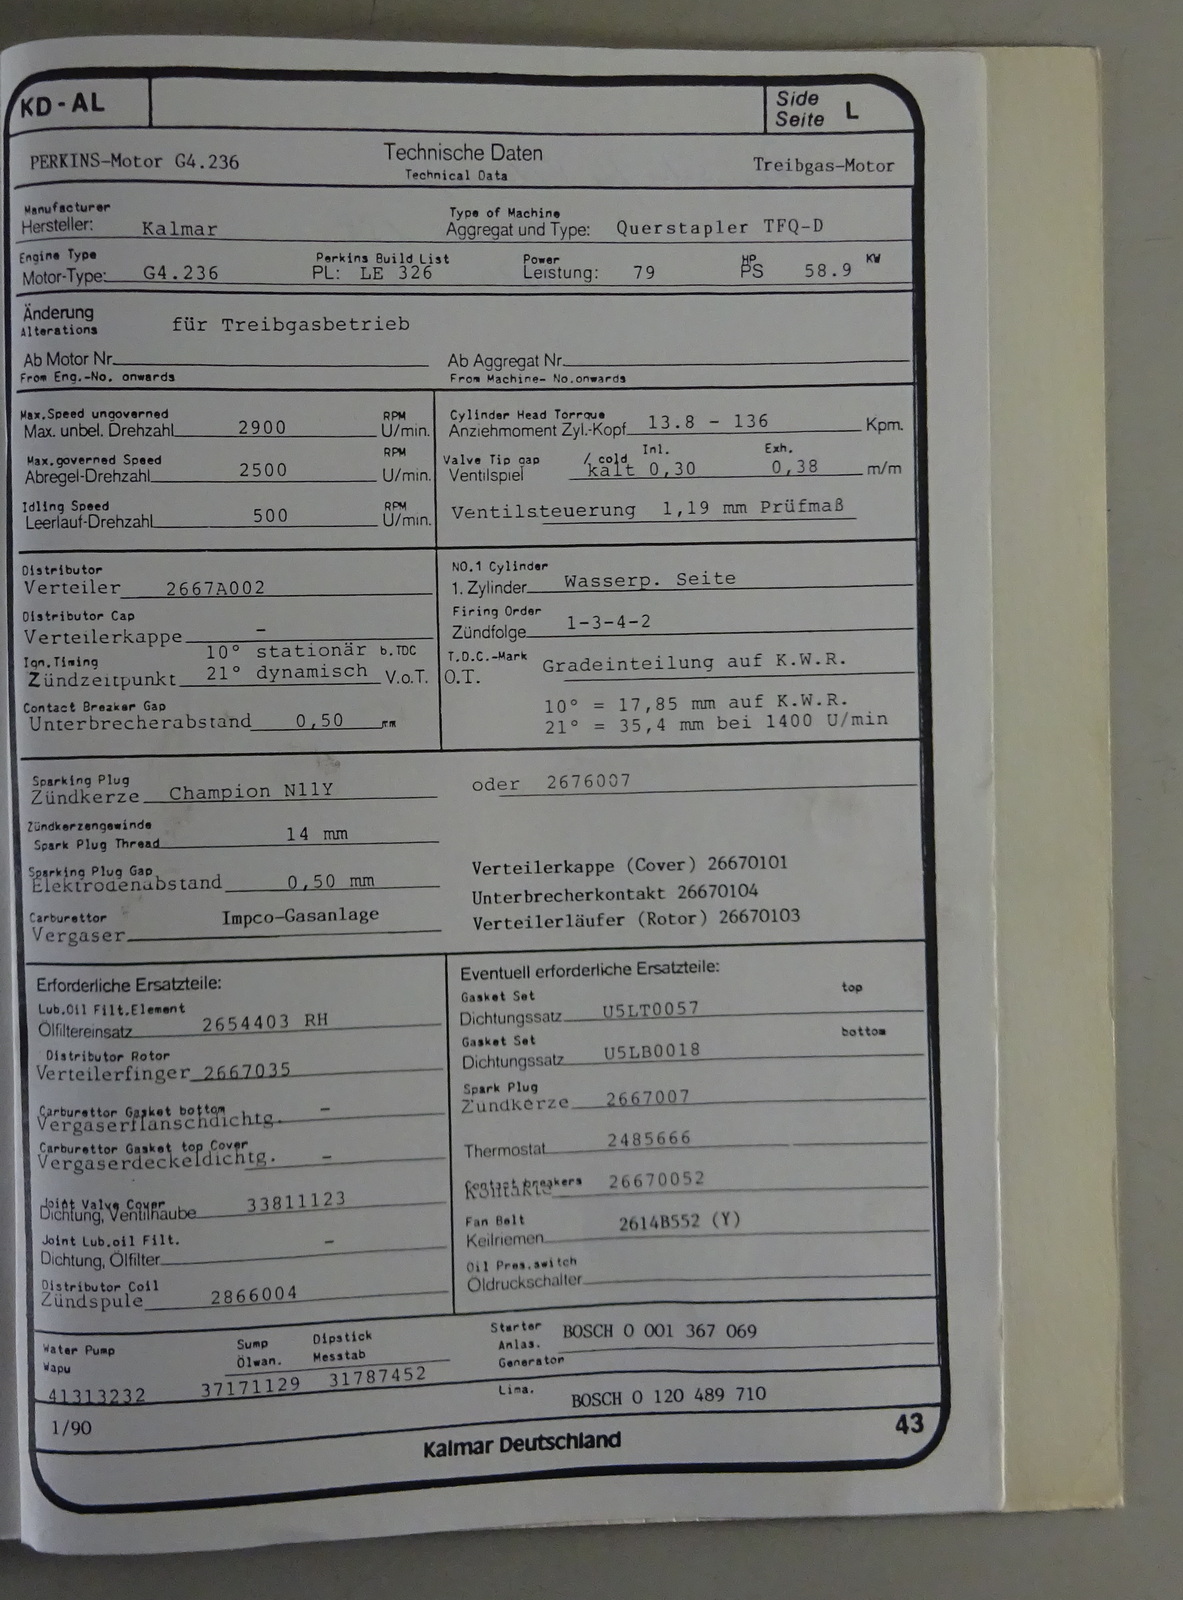 KD-AL
Side
Seite L
PERKINS-Motor G4.236
Technische Daten
Technical Data
Treibgas-Motor
Manufacturer
Hersteller: Kalmar
Type of Machine
Aggregat und Type: Querstapler TFQ-D
Engine Type
Motor-Type: G4.236
Perkins Build List
PL: LE 326
Power
Leistung: 79
HP
PS 58.9 KW
Änderung
Alterations
für Treibgasbetrieb
Ab Motor Nr.
From Eng.-No. onwards
Ab Aggregat Nr.
From Machine- No.onwards
Max.Speed ungoverned RPM
Max. unbel. Drehzahl 2900 U/min.
Max.governed Speed RPM
Abregel-Drehzahl 2500 U/min.
Idling Speed RPM
Leerlauf-Drehzahl 500 U/min.
Cylinder Head Torrque
Anziehmoment Zyl.-Kopf 13.8 - 136 Kpm.
Valve Tip gap / cold Inl. Exh.
Ventilspiel kalt 0,30 0,38 m/m
Ventilsteuerung 1,19 mm Prüfmaß
Distributor
Verteiler 2667A002
Distributor Cap
Verteilerkappe -
Ign.Timing 10° stationär b.TDC
Zündzeitpunkt 21° dynamisch V.o.T.
Contact Breaker Gap
Unterbrecherabstand 0,50 mm
NO.1 Cylinder
1. Zylinder Wasserp. Seite
Firing Order
Zündfolge 1-3-4-2
T.D.C.-Mark
O.T. Gradeinteilung auf K.W.R.
10° = 17,85 mm auf K.W.R.
21° = 35,4 mm bei 1400 U/min
Sparking Plug
Zündkerze Champion N11Y oder 2676007
Zündkerzengewinde
Spark Plug Thread 14 mm
Sparking Plug Gap
Elektrodenabstand 0,50 mm
Carburettor
Vergaser Impco-Gasanlage
Verteilerkappe (Cover) 26670101
Unterbrecherkontakt 26670104
Verteilerläufer (Rotor) 26670103
Erforderliche Ersatzteile:
Lub.Oil Filt.Element
Ölfiltereinsatz 2654403 RH
Distributor Rotor
Verteilerfinger 2667035
Carburettor Gasket bottom
Vergaserflanschdichtg. -
Carburettor Gasket top Cover
Vergaserdeckeldichtg. -
Joint Valve Cover
Dichtung, Ventilhaube 33811123
Joint Lub.oil Filt.
Dichtung, Ölfilter -
Distributor Coil
Zündspule 2866004
Eventuell erforderliche Ersatzteile:
Gasket Set top
Dichtungssatz U5LT0057
Gasket Set bottom
Dichtungssatz U5LB0018
Spark Plug
Zündkerze 2667007
Thermostat 2485666
Contact breakers
Kontakte 26670052
Fan Belt
Keilriemen 2614B552 (Y)
Oil Pres.switch
Öldruckschalter
Water Pump
Wapu
41313232
Sump
Ölwan.
37171129
Dipstick
Messtab
31787452
Starter
Anlas. BOSCH 0 001 367 069
Generator
Lima. BOSCH 0 120 489 710
1/90
Kalmar Deutschland
43